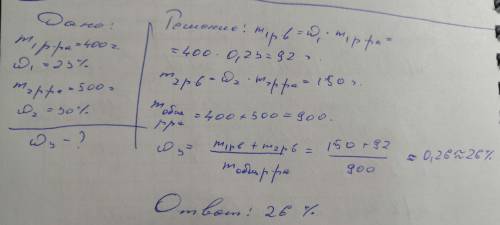 Дано:
m₁р-ра = 400 г
ω₁ = 23%
m₂р-ра = 500 г
ω₂ = 30%
ω₃ - ?
Решение: m₁рв = ω₁ · m₁р-ра =
= 400 · 0,23 = 92 г.
m₂рв = ω₂ · m₂р-ра = 150 г.
m общ р-ра = 400 + 500 = 900.
ω₃ = (m₁рв + m₂рв) / m общ р-ра = (150 + 92) / 900 ≈ 0,26 ≈ 26%
Ответ: 26 %